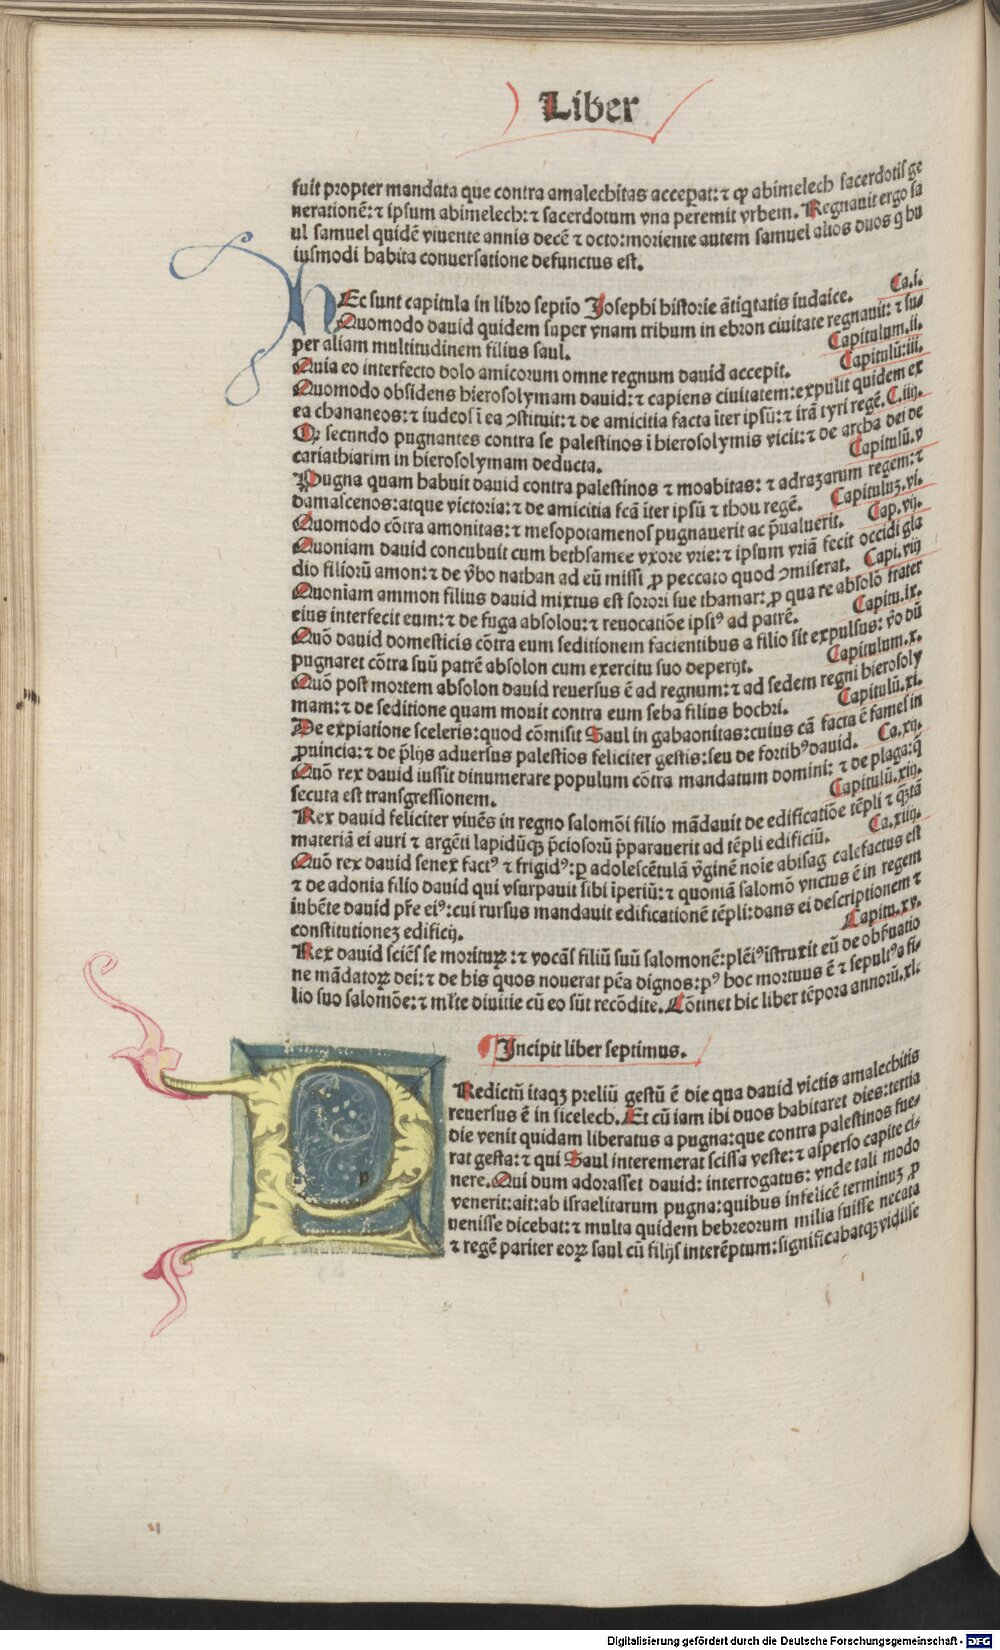 Liber
fuit propter mandata que contra amalechitas acceperat: ⁊ ꝙ abimelech sacerdotis ge
nerationē: ⁊ ipsum abimelech: ⁊ sacerdotum vna peremit vrbem. Regnauit ergo sa
ul samuel quidē viuente annis decē ⁊ octo: moriente autem samuel alios duos q̄ hu
iusmodi habita conuersatione defunctus est.
Ca.i.
HEc sunt capitula in libro septīo Josephi historie ātiqtatis iudaice.
Quomodo dauid quidem super vnam tribum in ebron ciuitate regnauit: ⁊ su-
per aliam multitudinem filius saul. Capitulum.ii.
Quia eo interfecto dolo amicorum omne regnum dauid accepit. Capitulū:iii.
Quomodo obsidens hierosolymam dauid: ⁊ capiens ciuitatem: expulit quidem ex
ea chananeos: ⁊ iudeos ī ea ↄstituit: ⁊ de amicitia facta īter ipsū: ⁊ irā tyri regē. C.iiij.
Qꝫ secundo pugnantes contra se palestinos ī hierosolymis vicit: ⁊ de archa dei de
cariathiarim in hierosolymam deducta. Capitulū.v
Pugna quam habuit dauid contra palestinos ⁊ moabitas: ⁊ adrazarum regem: ⁊
damascenos: atque victoria: ⁊ de amicitia fcā īter ipsū ⁊ thou regē. Capituluꝫ.vi.
Quomodo cōtra amonitas: ⁊ mesopotamenos pugnauerit ac p̄ualuerit. Cap.vij.
Quoniam dauid concubuit cum bethsamee vxore vrie: ⁊ ipsum vriā fecit occidi gla
dio filiorū amon: ⁊ de v̄bo nathan ad eū missi ꝓ peccato quod ↄmiserat. Capi.viij
Quoniam ammon filius dauid mixtus est sorori sue thamar: ꝓ qua re absolō frater
eius interfecit eum: ⁊ de fuga absolon: ⁊ reuocatiōe ipsiꝰ ad patrē. Capitu.ix.
Quō dauid domesticis cōtra eum seditionem facientibus a filio sit expulsus: v̄o dū
pugnaret cōtra suū patrē absolon cum exercitu suo deperijt. Capitulum.x.
Quō post mortem absolon dauid reuersus ē ad regnum: ⁊ ad sedem regni hierosoly
mam: ⁊ de seditione quam mouit contra eum seba filius bochri. Capitulū.xi.
De expiatione sceleris: quod cōmisit Saul in gabaonitas: cuius cā facta ē fames in
ꝓuincia: ⁊ de p̄lijs aduersus palestīos feliciter gestis: seu de fortibꝰ dauid. Ca.xij.
Quō rex dauid iussit dinumerare populum cōtra mandatum domini: ⁊ de plaga: q̄
secuta est transgressionem. Capitulū.xiij.
Rex dauid feliciter viuēs in regno salomōi filio mādauit de edificatiōe tēpli ⁊ qꝫtā
materiā ei auri ⁊ argēti lapidūqꝫ p̄ciosorū p̄parauerit ad tēpli edificiū. Ca.xiiij.
Quō rex dauid senex factꝰ ⁊ frigidꝰ: ꝑ adolescētulā v̄ginē noie abisag calefactus est
⁊ de adonia filio dauid qui vsurpauit sibi īperiū: ⁊ quoniā salomō vnctus ē in regem
iubēte dauid pr̄e eiꝰ: cui rursus mandauit edificationē tēpli: dans ei descriptionem ⁊
constitutioneꝫ edificij. Capitu.xv.
Rex dauid sciēs se moriturꝫ: ⁊ vocās filiū suū salomonē: plēiꝰ īstruxit eū de obẜuatio
ne mādatoꝝ dei: ⁊ de his quos nouerat pēa dignos: pꝰ hoc mortuus ē ⁊ sepultꝰ a fi-
lio suo salomōe: ⁊ ml̄te diuitie cū eo sūt recōdite. Cōtinet hic liber tēpora annorū.xl.
Incipit liber septimus.
PRedictū itaqꝫ preliū gestū ē die qua dauid victis amalechitis
reuersus ē in sicelech. Et cū iam ibi duos habitaret dies: tertia
die venit quidam liberatus a pugna: que contra palestinos fue-
rat gesta: ⁊ qui Saul interemerat scissa veste: ⁊ asperso capite ci-
nere. Qui dum adorasset dauid: interrogatus: vnde tali modo
venerit: ait: ab israelitarum pugna: quibus infelicē terminuꝫ ꝓ
uenisse dicebat: ⁊ multa quidem hebreorum milia fuisse necata
⁊ regē pariter eoꝝ saul cū filijs interēptum: significabatqꝫ vidisse
Digitalisierung gefördert durch die Deutsche Forschungsgemeinschaft - DFG